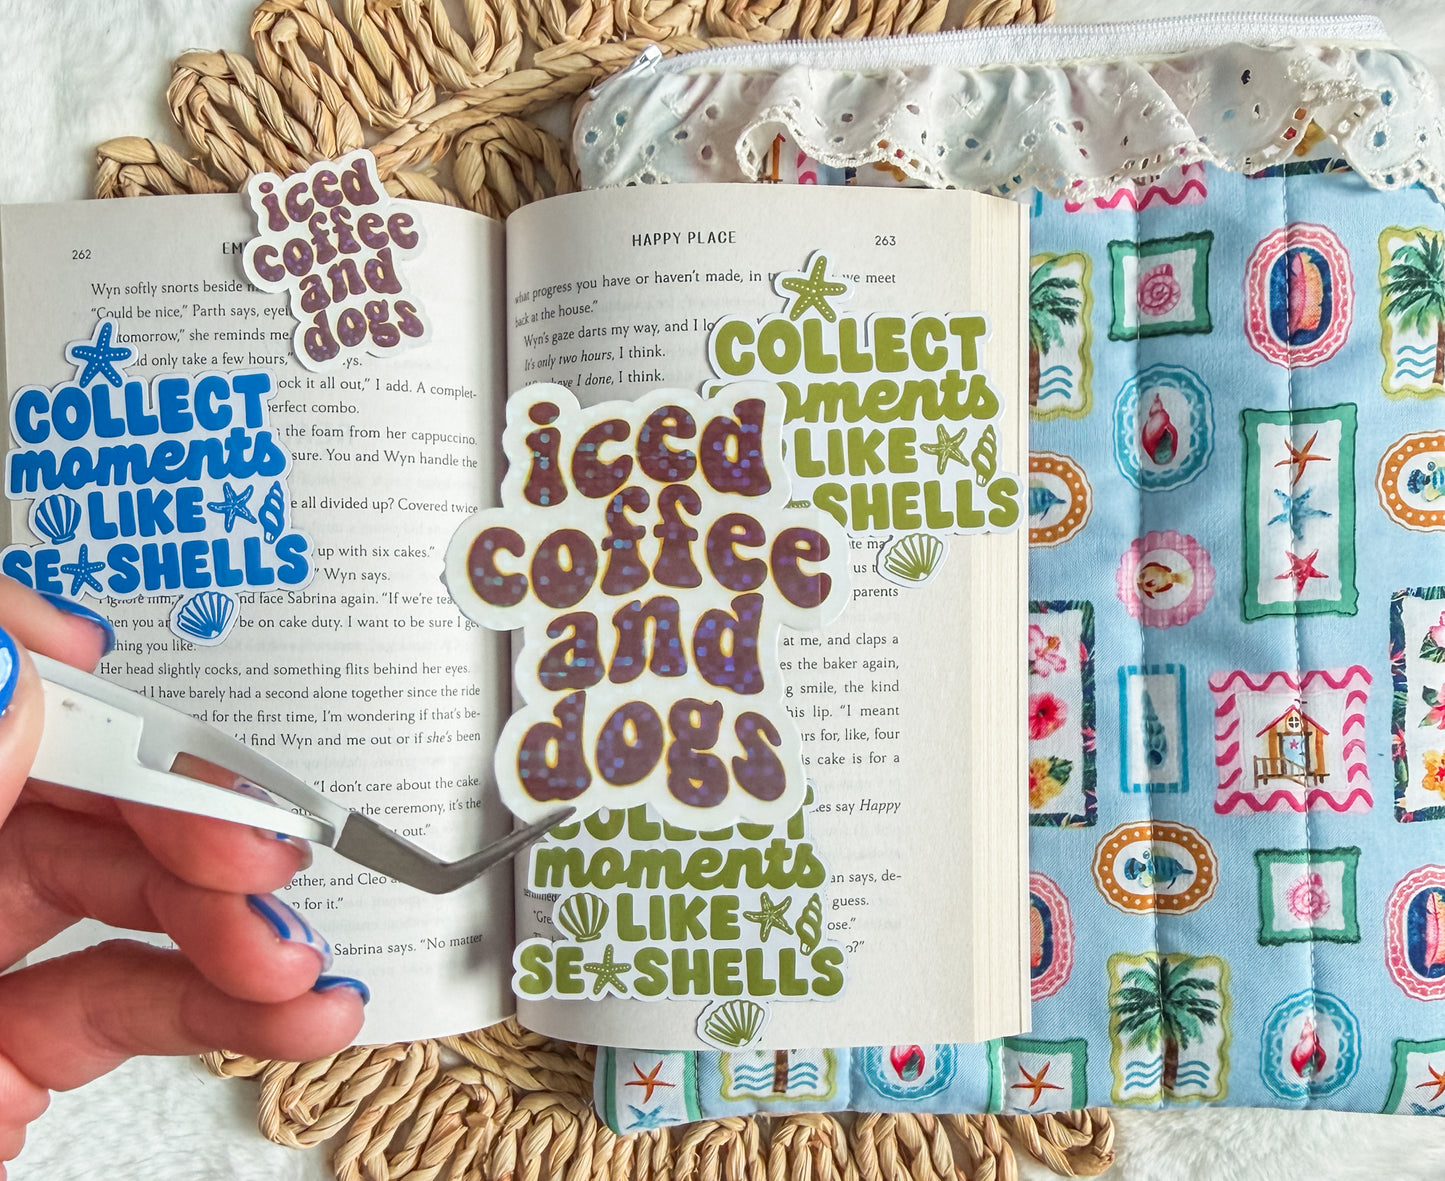 262
EM
Wyn softly snorts beside
"Could be nice," Parth says,
tomorrow," she reminds me.
only take a few hours,"
ock it all out," I add. A complet-
perfect combo.
the foam from her cappuccino.
sure. You and Wyn handle the
all divided up? Covered twice
up with six cakes."
Wyn says.
and face Sabrina again. "If we're
be on cake duty. I want to be sure I get
you like."
Her head slightly cocks, and something flits behind her eyes.
I have barely had a second alone together since the ride
and for the first time, I'm wondering if that's be-
find Wyn and me out or if she's been
"I don't care about the cake.
the ceremony, it's the
out."
and Cleo
for it."
Sabrina says. "No matter
iced
coffee
and
dogs
COLLECT
moments
LIKE
SEASHELLS
HAPPY PLACE
263
what progress you have or haven't made, in
we meet
back at the house."
Wyn's gaze darts my way, and I
It's only two hours, I think.
have I done, I think.
parents
at me, and claps a
the baker again,
smile, the kind
his lip. "I meant
for, like, four
cake is for a
say Happy
says, de-
guess.
COLLECT
moments
LIKE
SHELLS
iced
coffee
and
dogs
COLLECT
moments
LIKE
SEASHELLS